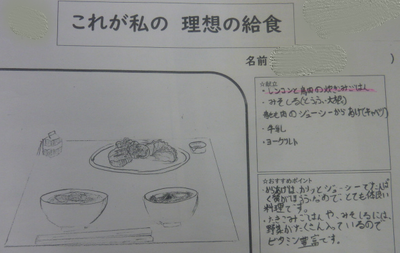 これが私の 理想の給食
名前 )
☆献立
・レンコンと鳥肉の炊きこみごはん
・みそしる(とうふ・大根)
・鳥もも肉のジューシーからあげ(キャベツ)
・牛乳
・ヨーグルト
☆おすすめポイント
・からあげは、カリッとジューシーでたんぱ
く質がほうふなのでとても体に良い
料理です。
・たきこみごはんや、みそしるには、
野菜がたくさん入っているので
ビタミン豊富です。